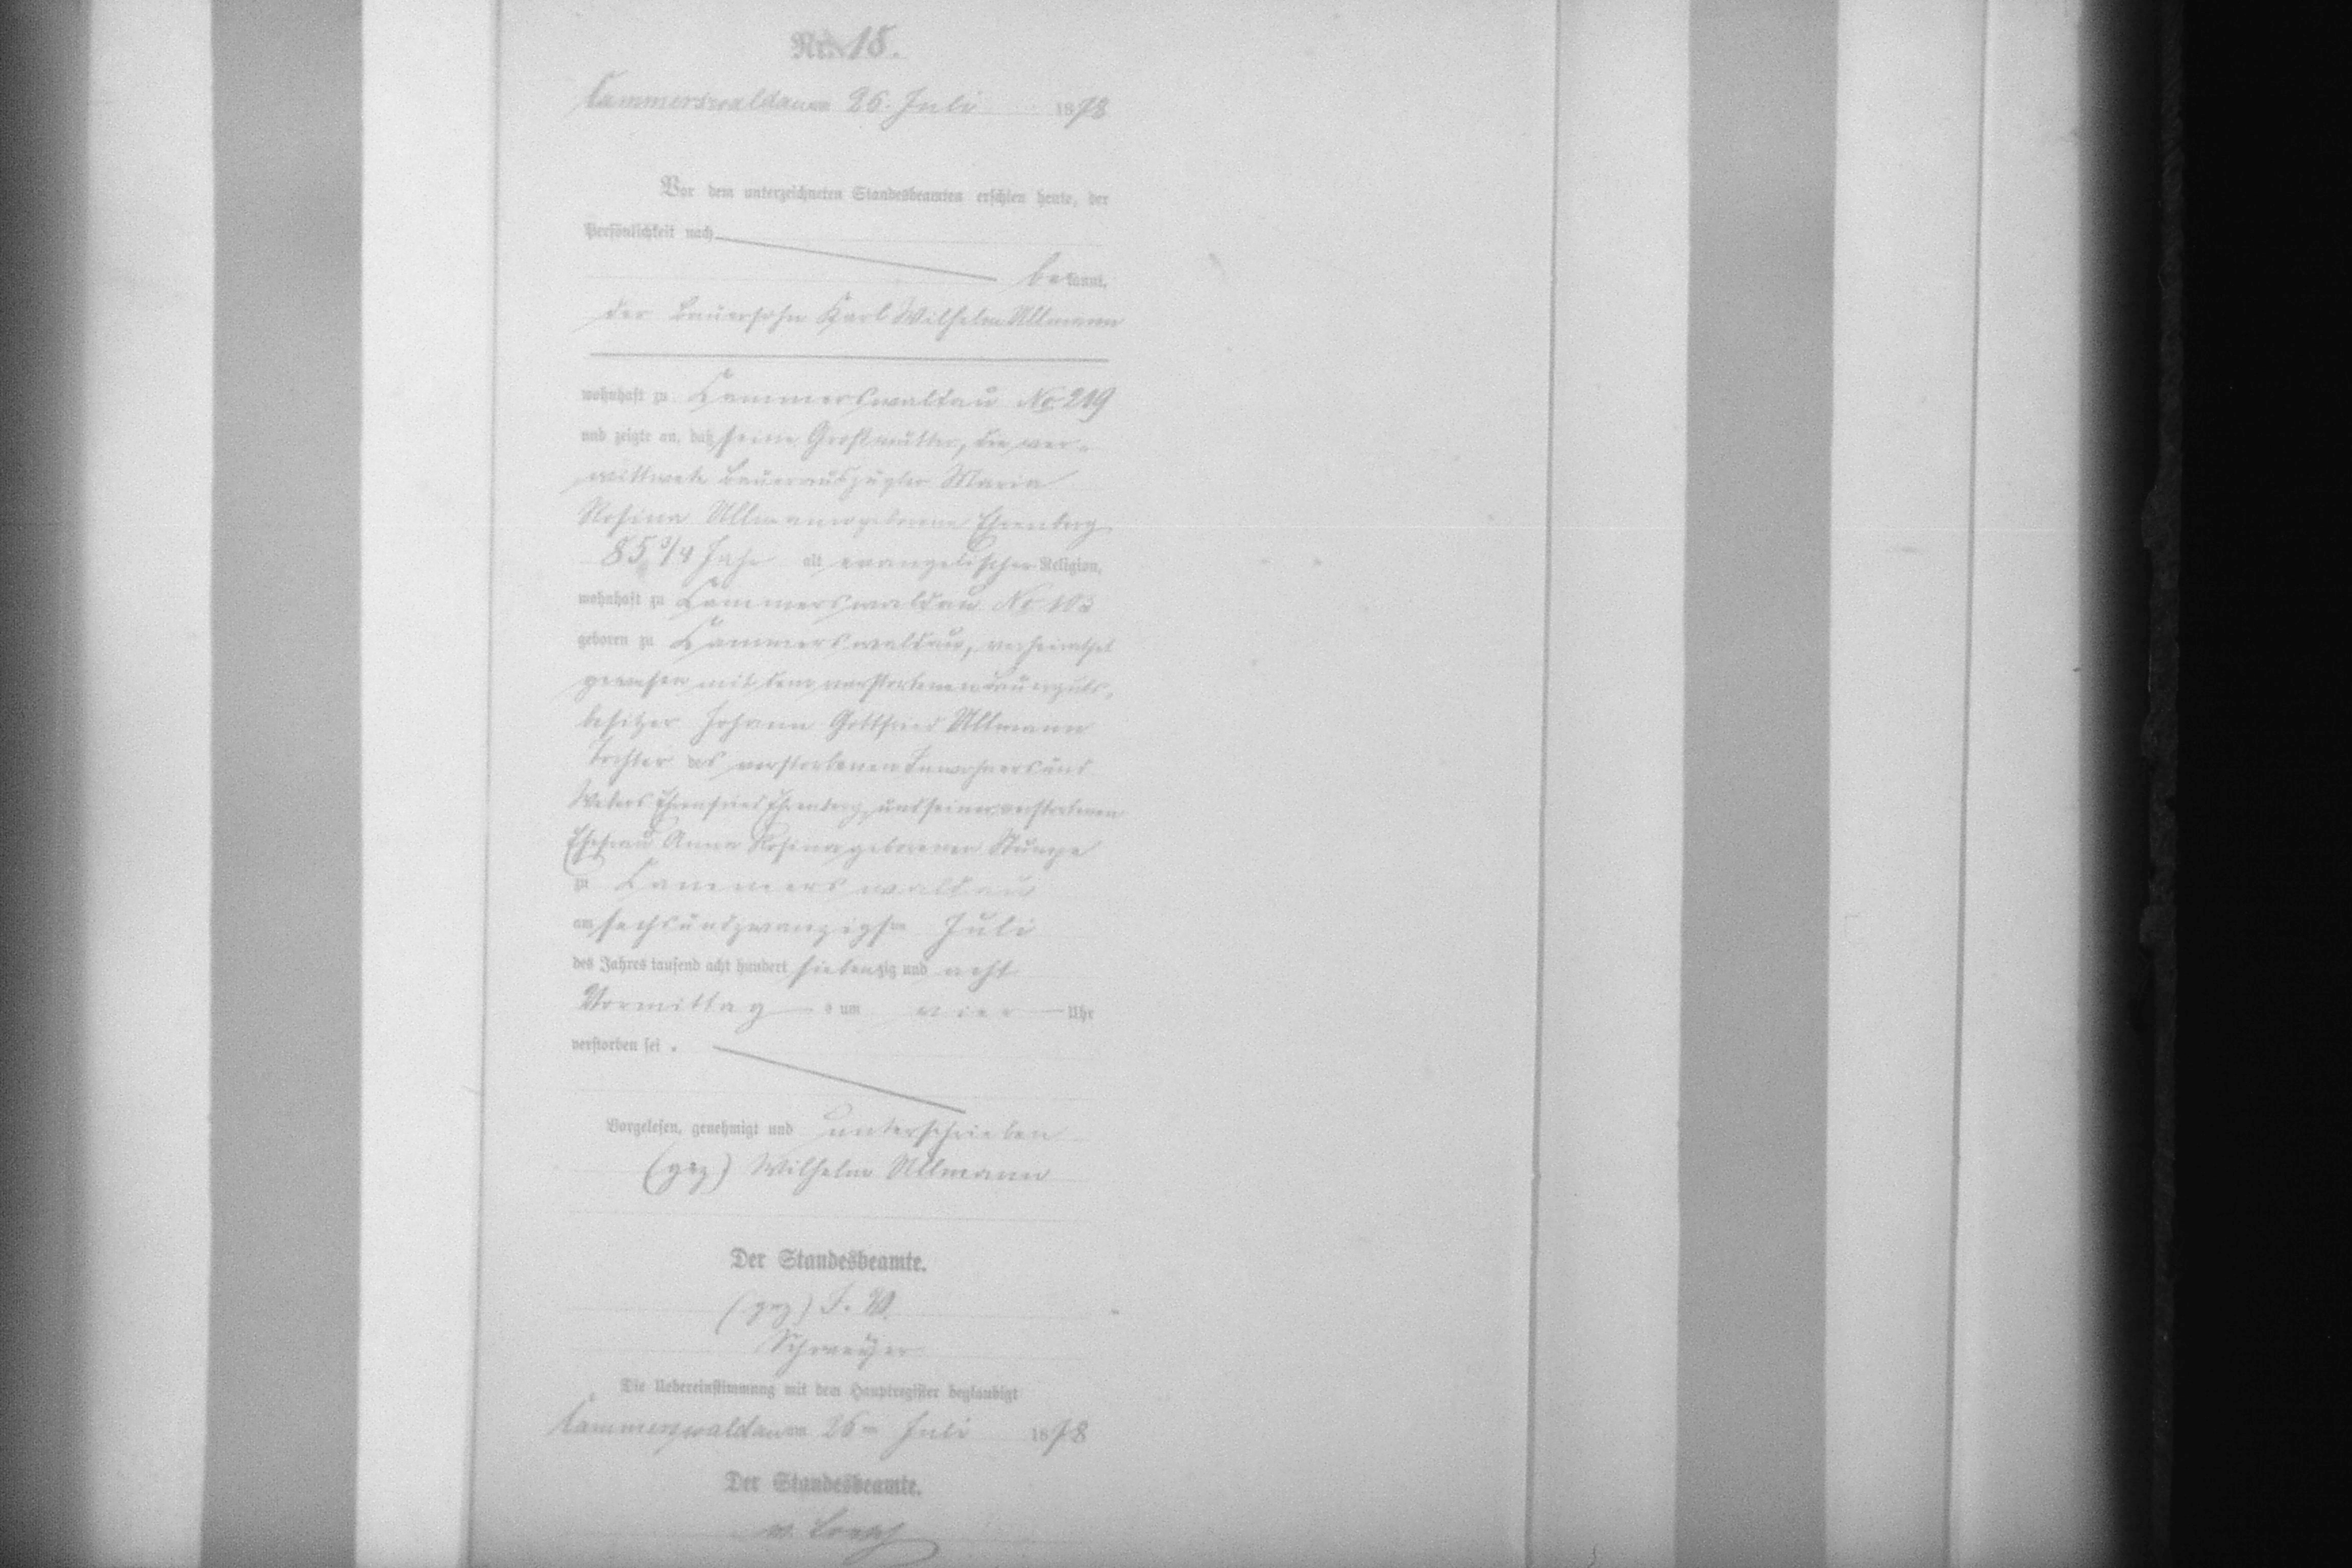 Nr. 15.
Cammerswaldau am 26. Juli 1878
Vor dem unterzeichneten Standesbeamten erschien heute, der
Persönlichkeit nach
bekannt,
der Bauersohn Karl Wilhelm Ullmann
wohnhaft zu Kammerswaldau No 219
und zeigte an, daß seine Großmutter, die ver-
wittwete Bauerauszügler Maria
Rosina Ullmann geborene Ehrenberg
85 3/4 Jahr alt evangelischer Religion,
wohnhaft zu Kammerswaldau No 103
geboren zu Kammerswaldau, verheirathet
gewesen mit dem verstorbenen Bauerguts-
besitzer Johann Gottfried Ullmann
Tochter des verstorbenen Inwohners und
Webers Ehrenfried Ehrenberg, und seiner verstorbenen
Ehefrau Anna Rosina geborenen Stumpe
zu Kammerswaldau
am sechsundzwanzigsten Juli
des Jahres tausend acht hundert siebenzig und acht
Vormittags um vier Uhr
verstorben sei.
Vorgelesen, genehmigt und unterschrieben
(gez) Wilhelm Ullmann
Der Standesbeamte.
(gez)
Die Uebereinstimmung mit dem Hauptregister beglaubigt
Cammerswaldau am 26ten Juli 1878
Der Standesbeamte.